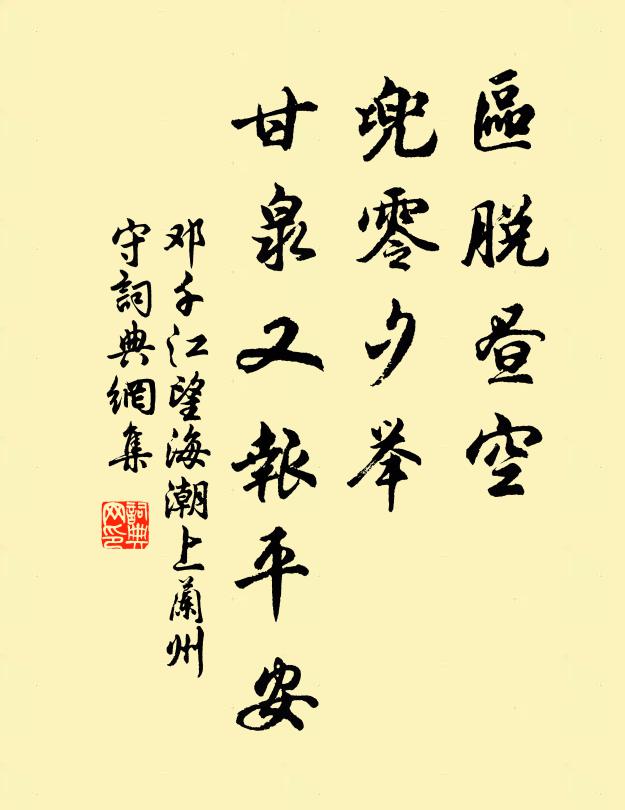 區脱昼空
兜零夕举
甘泉又報平安
邓千江望海潮上蘭州
守詞典網集
詞典
网印